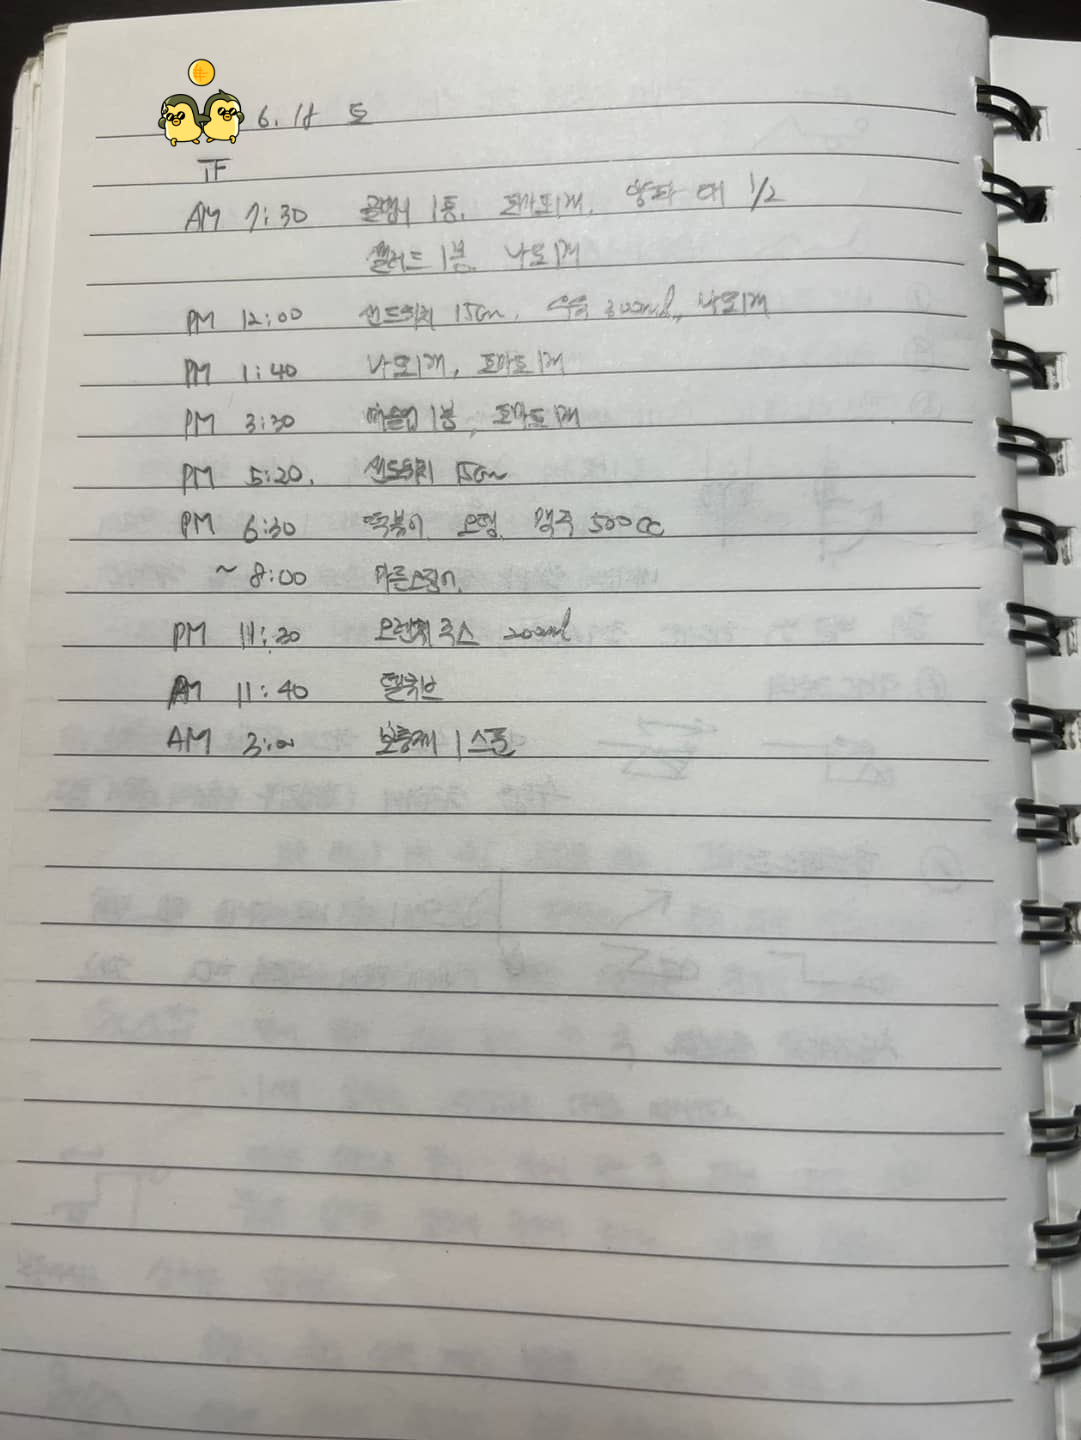 6. 18 토
正
AM 7:30 골뱅이 1통, 토마토1개, 양파 대 1/2
샐러드 1봉, 오이1개
PM 12:00 샌드위치 15cm, 우유 300ml, 오이1개
PM 1:40 오이1개, 토마토1개
PM 3:30 1봉, 토마토1개
PM 5:20. 샌드위치 15cm
PM 6:30 떡볶이 오뎅 맥주 500cc
~ 8:00 마른오징어
PM 11:30 오렌지쥬스 200ml
AM 11:40
AM 3:00 보충제 1스푼